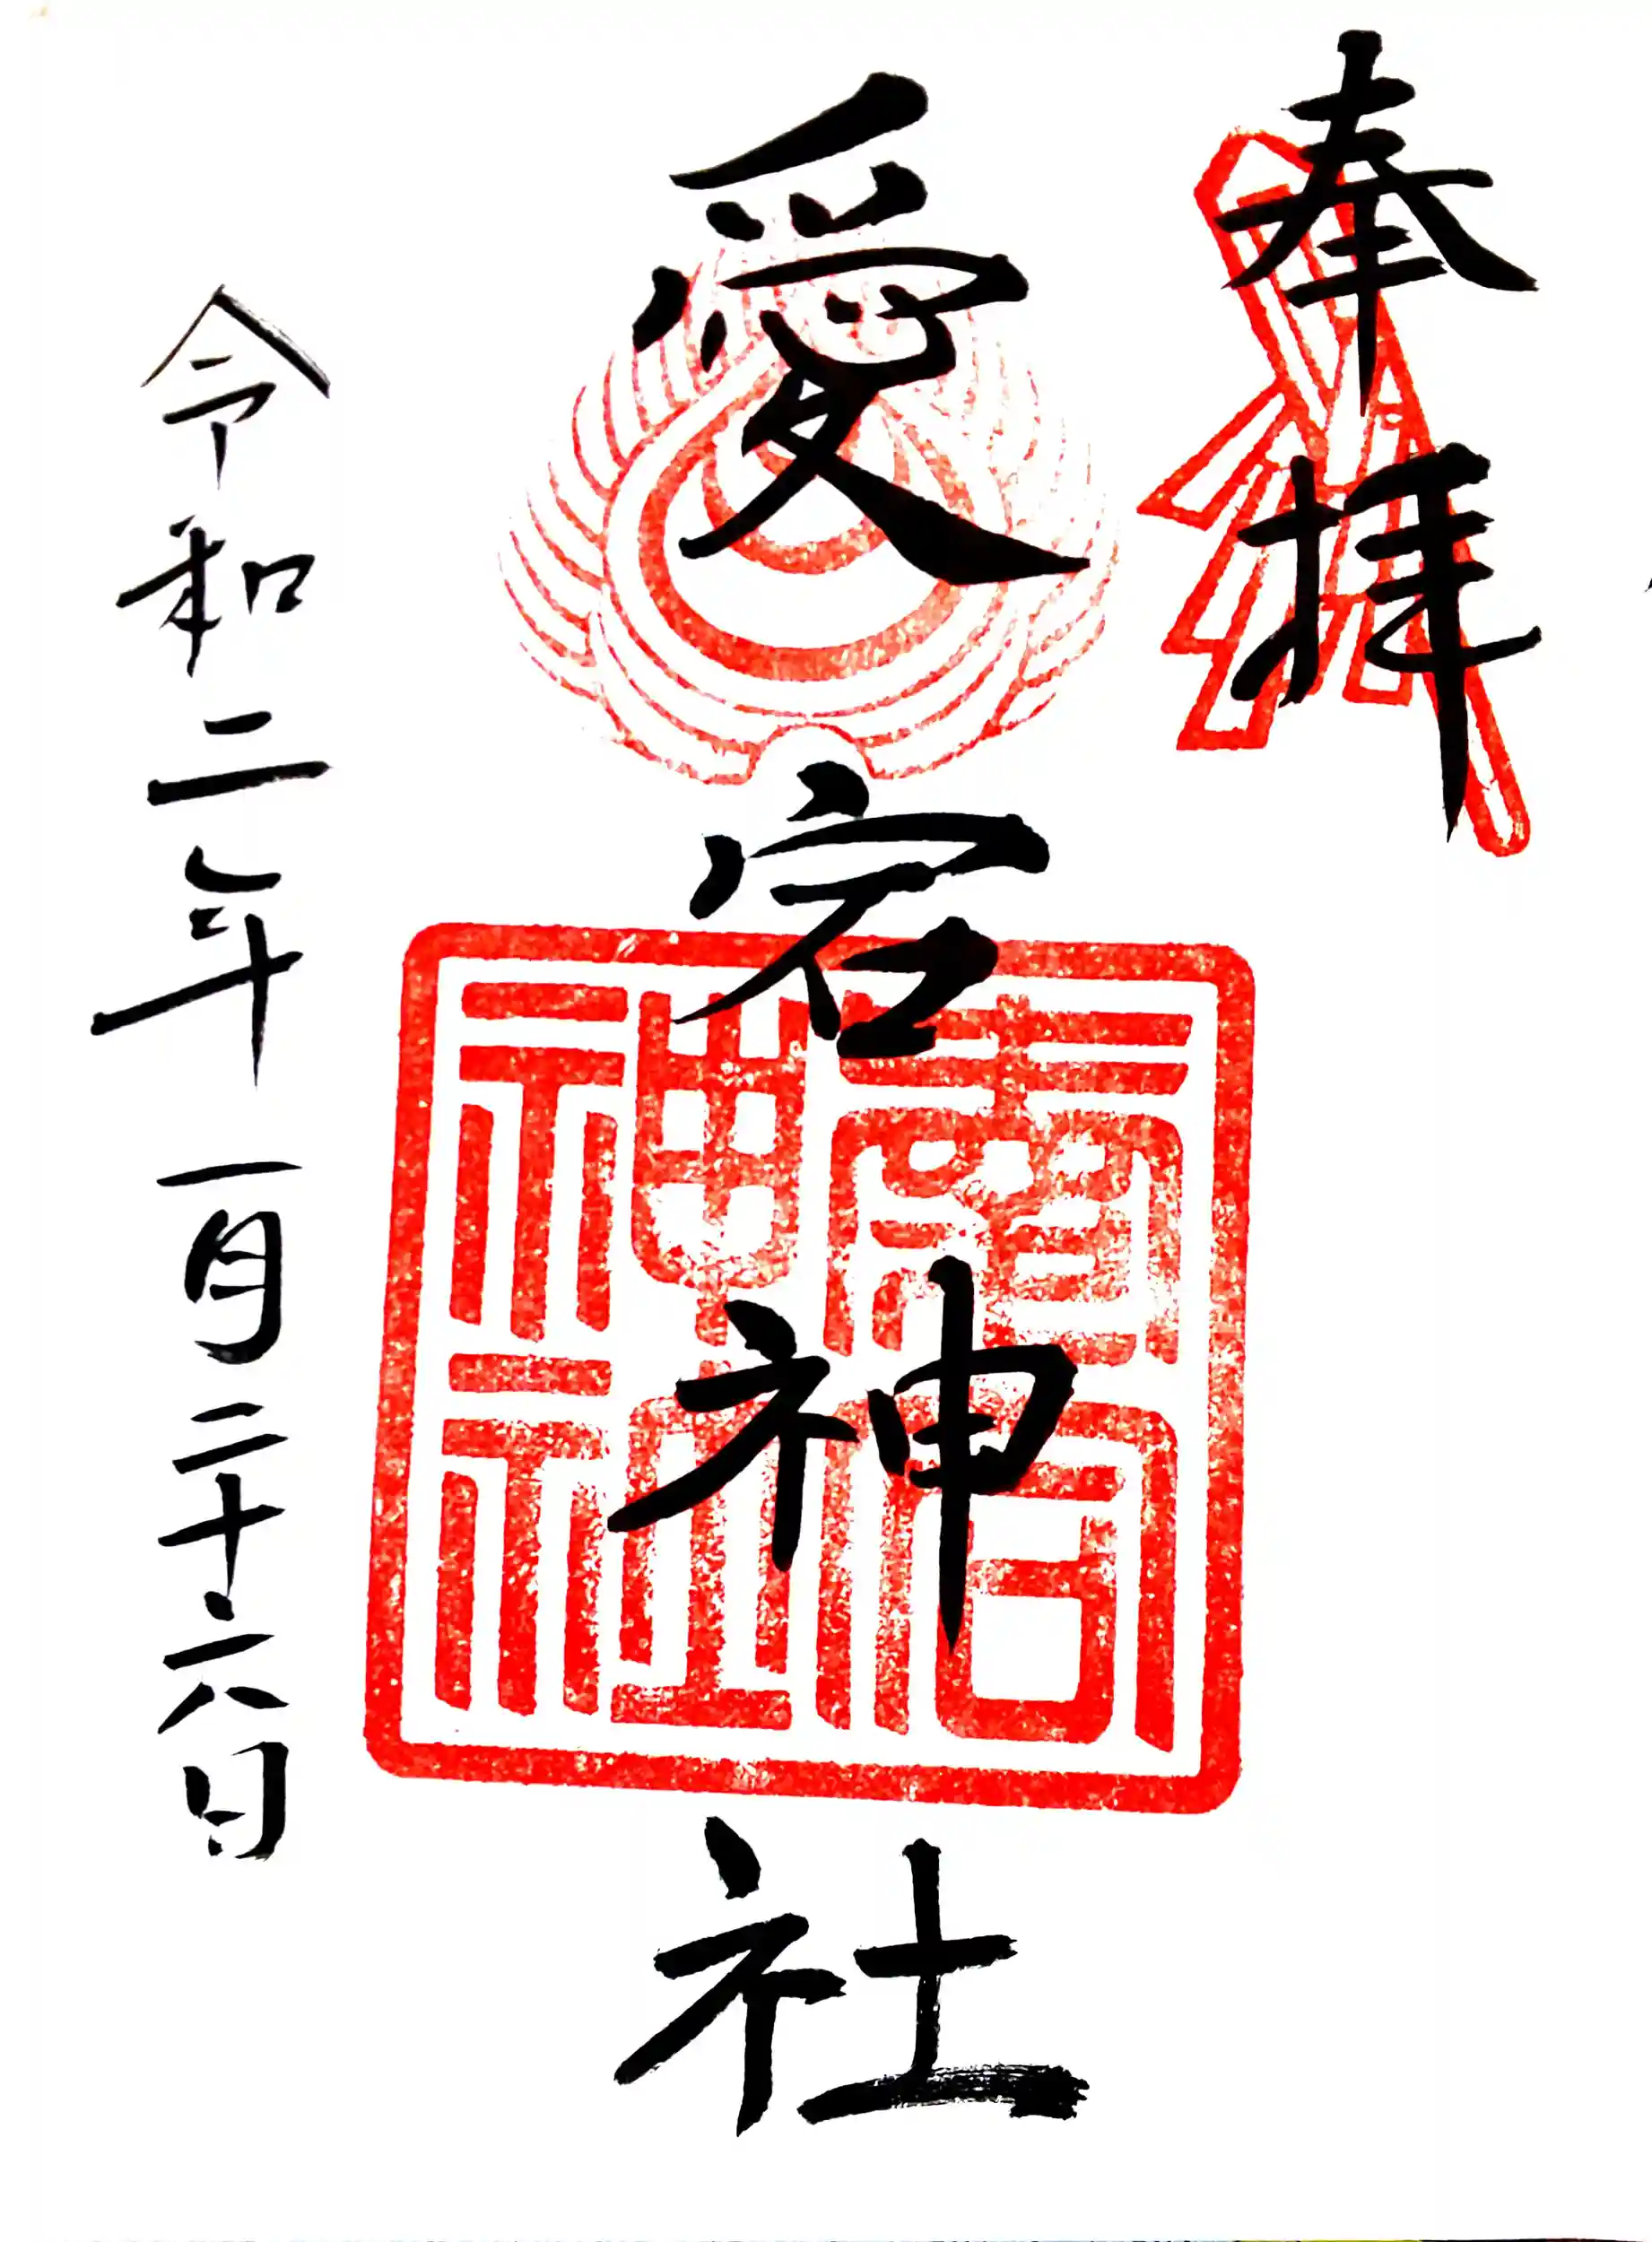 奉拝
愛宕神社
愛宕
神社
令和二年一月二十六日